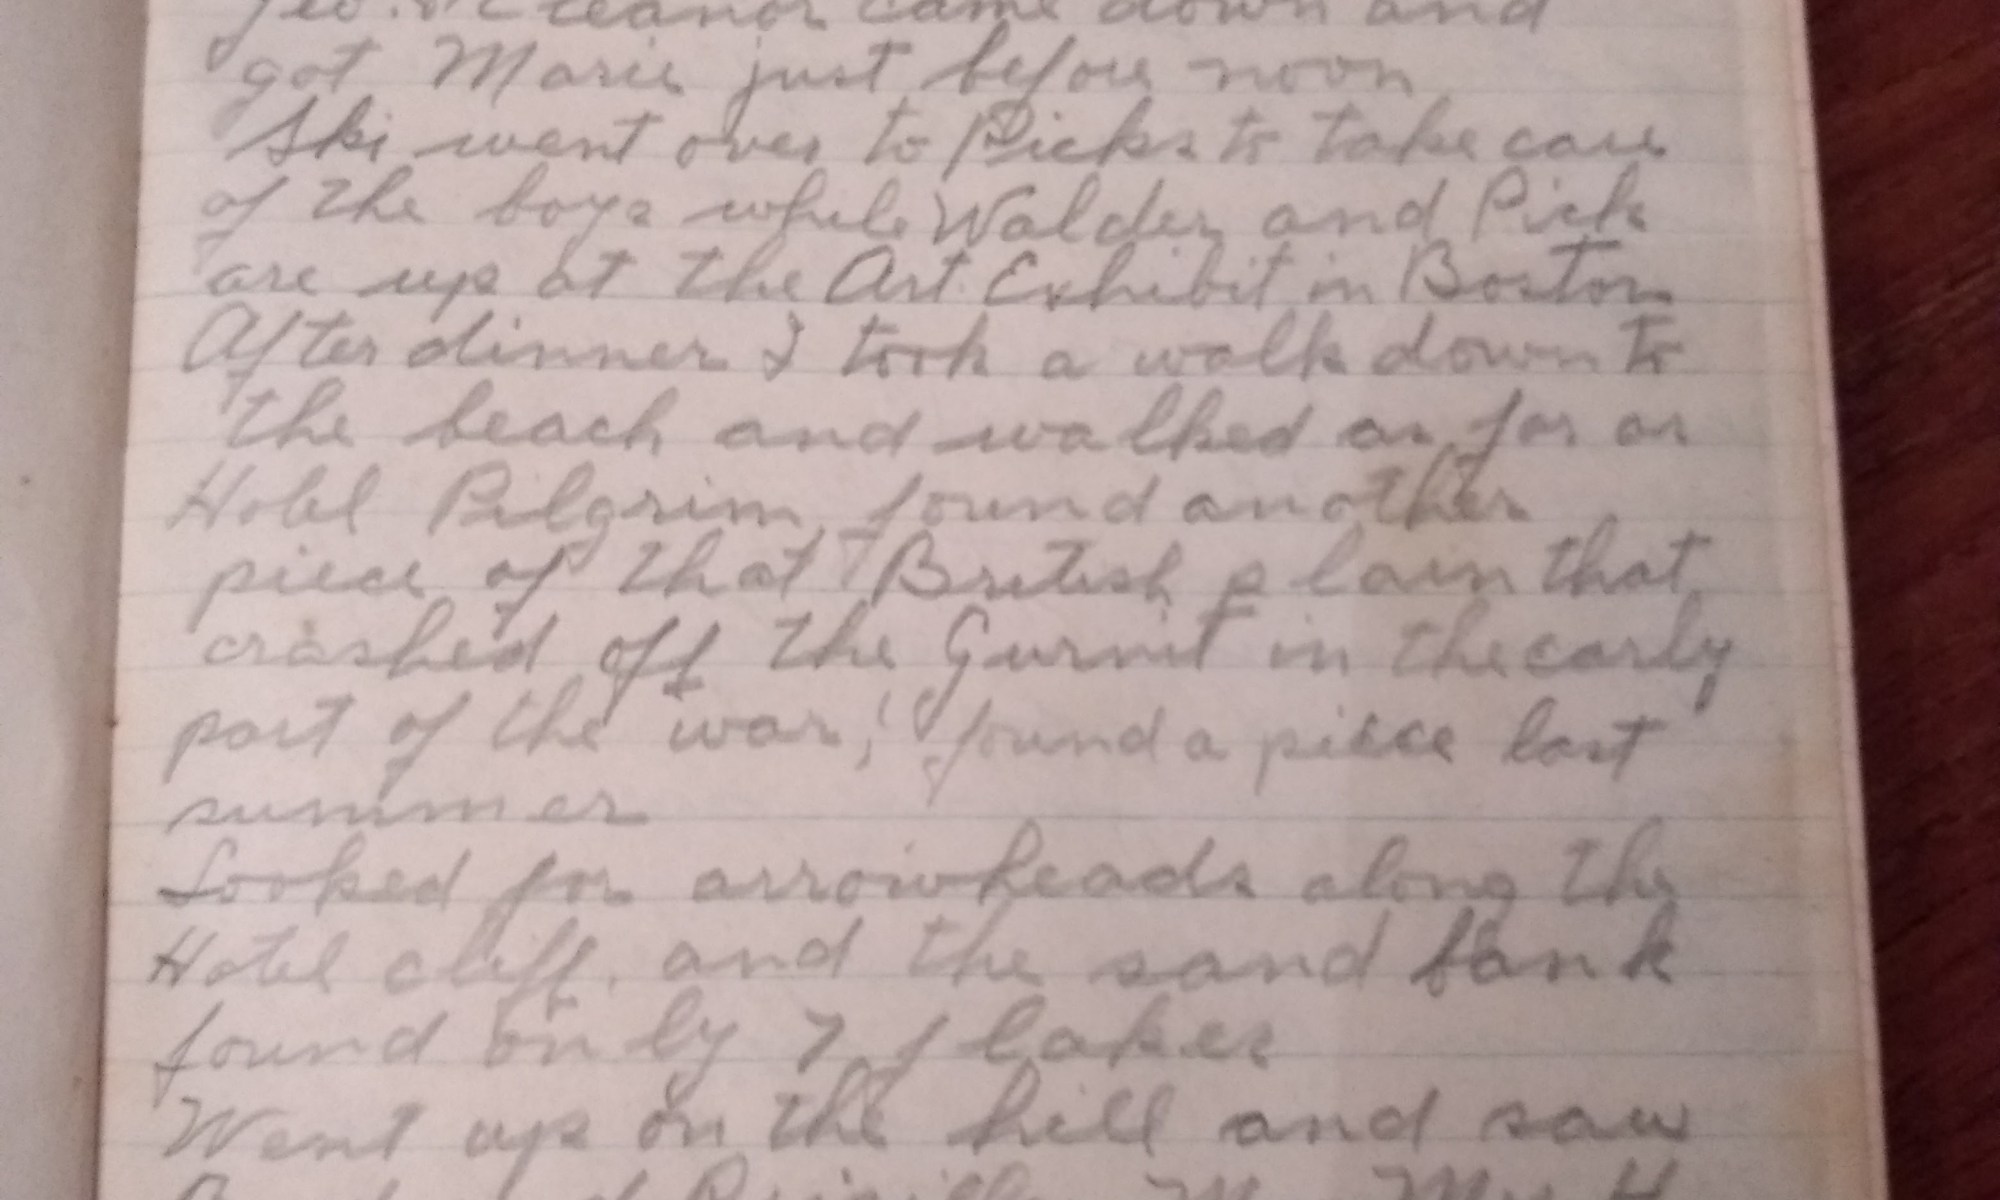 Geo. & Eleanor came down and
got Marie just before noon
Ski went over to Picks to take care
of the boys while Walden and Pick
are up at the Art Exhibit in Boston
After dinner I took a walk down to
the beach and walked as far as
Hotel Pilgrim found another
piece of that British plain that
crashed off the Gurnit in the early
part of the war, found a piece last
summer
Looked for arrowheads along the
Hotel cliff, and the sand bank
found only 7 flakes
Went up on the hill and saw